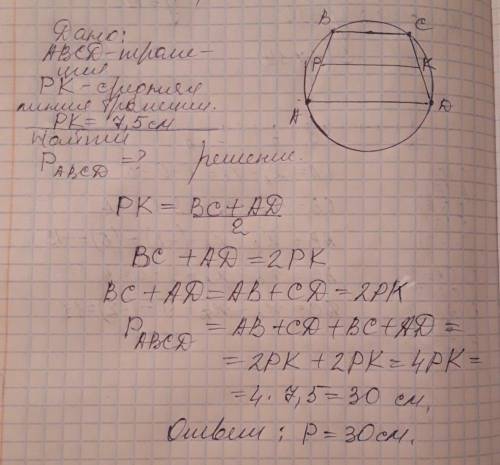 Дано:
ABCD-трапе-
ция
PK - средняя
линия трапеции.
PK = 7,5 см
Найти
P ABCD = ?
решение.
B
C
P
K
A
D
PK = BC + AD
2
BC + AD = 2PK
BC + AD = AB + CD = 2PK
P ABCD = AB + CD + BC + AD =
= 2PK + 2PK = 4PK =
= 4 · 7,5 = 30 см.
Ответ: P = 30 см.